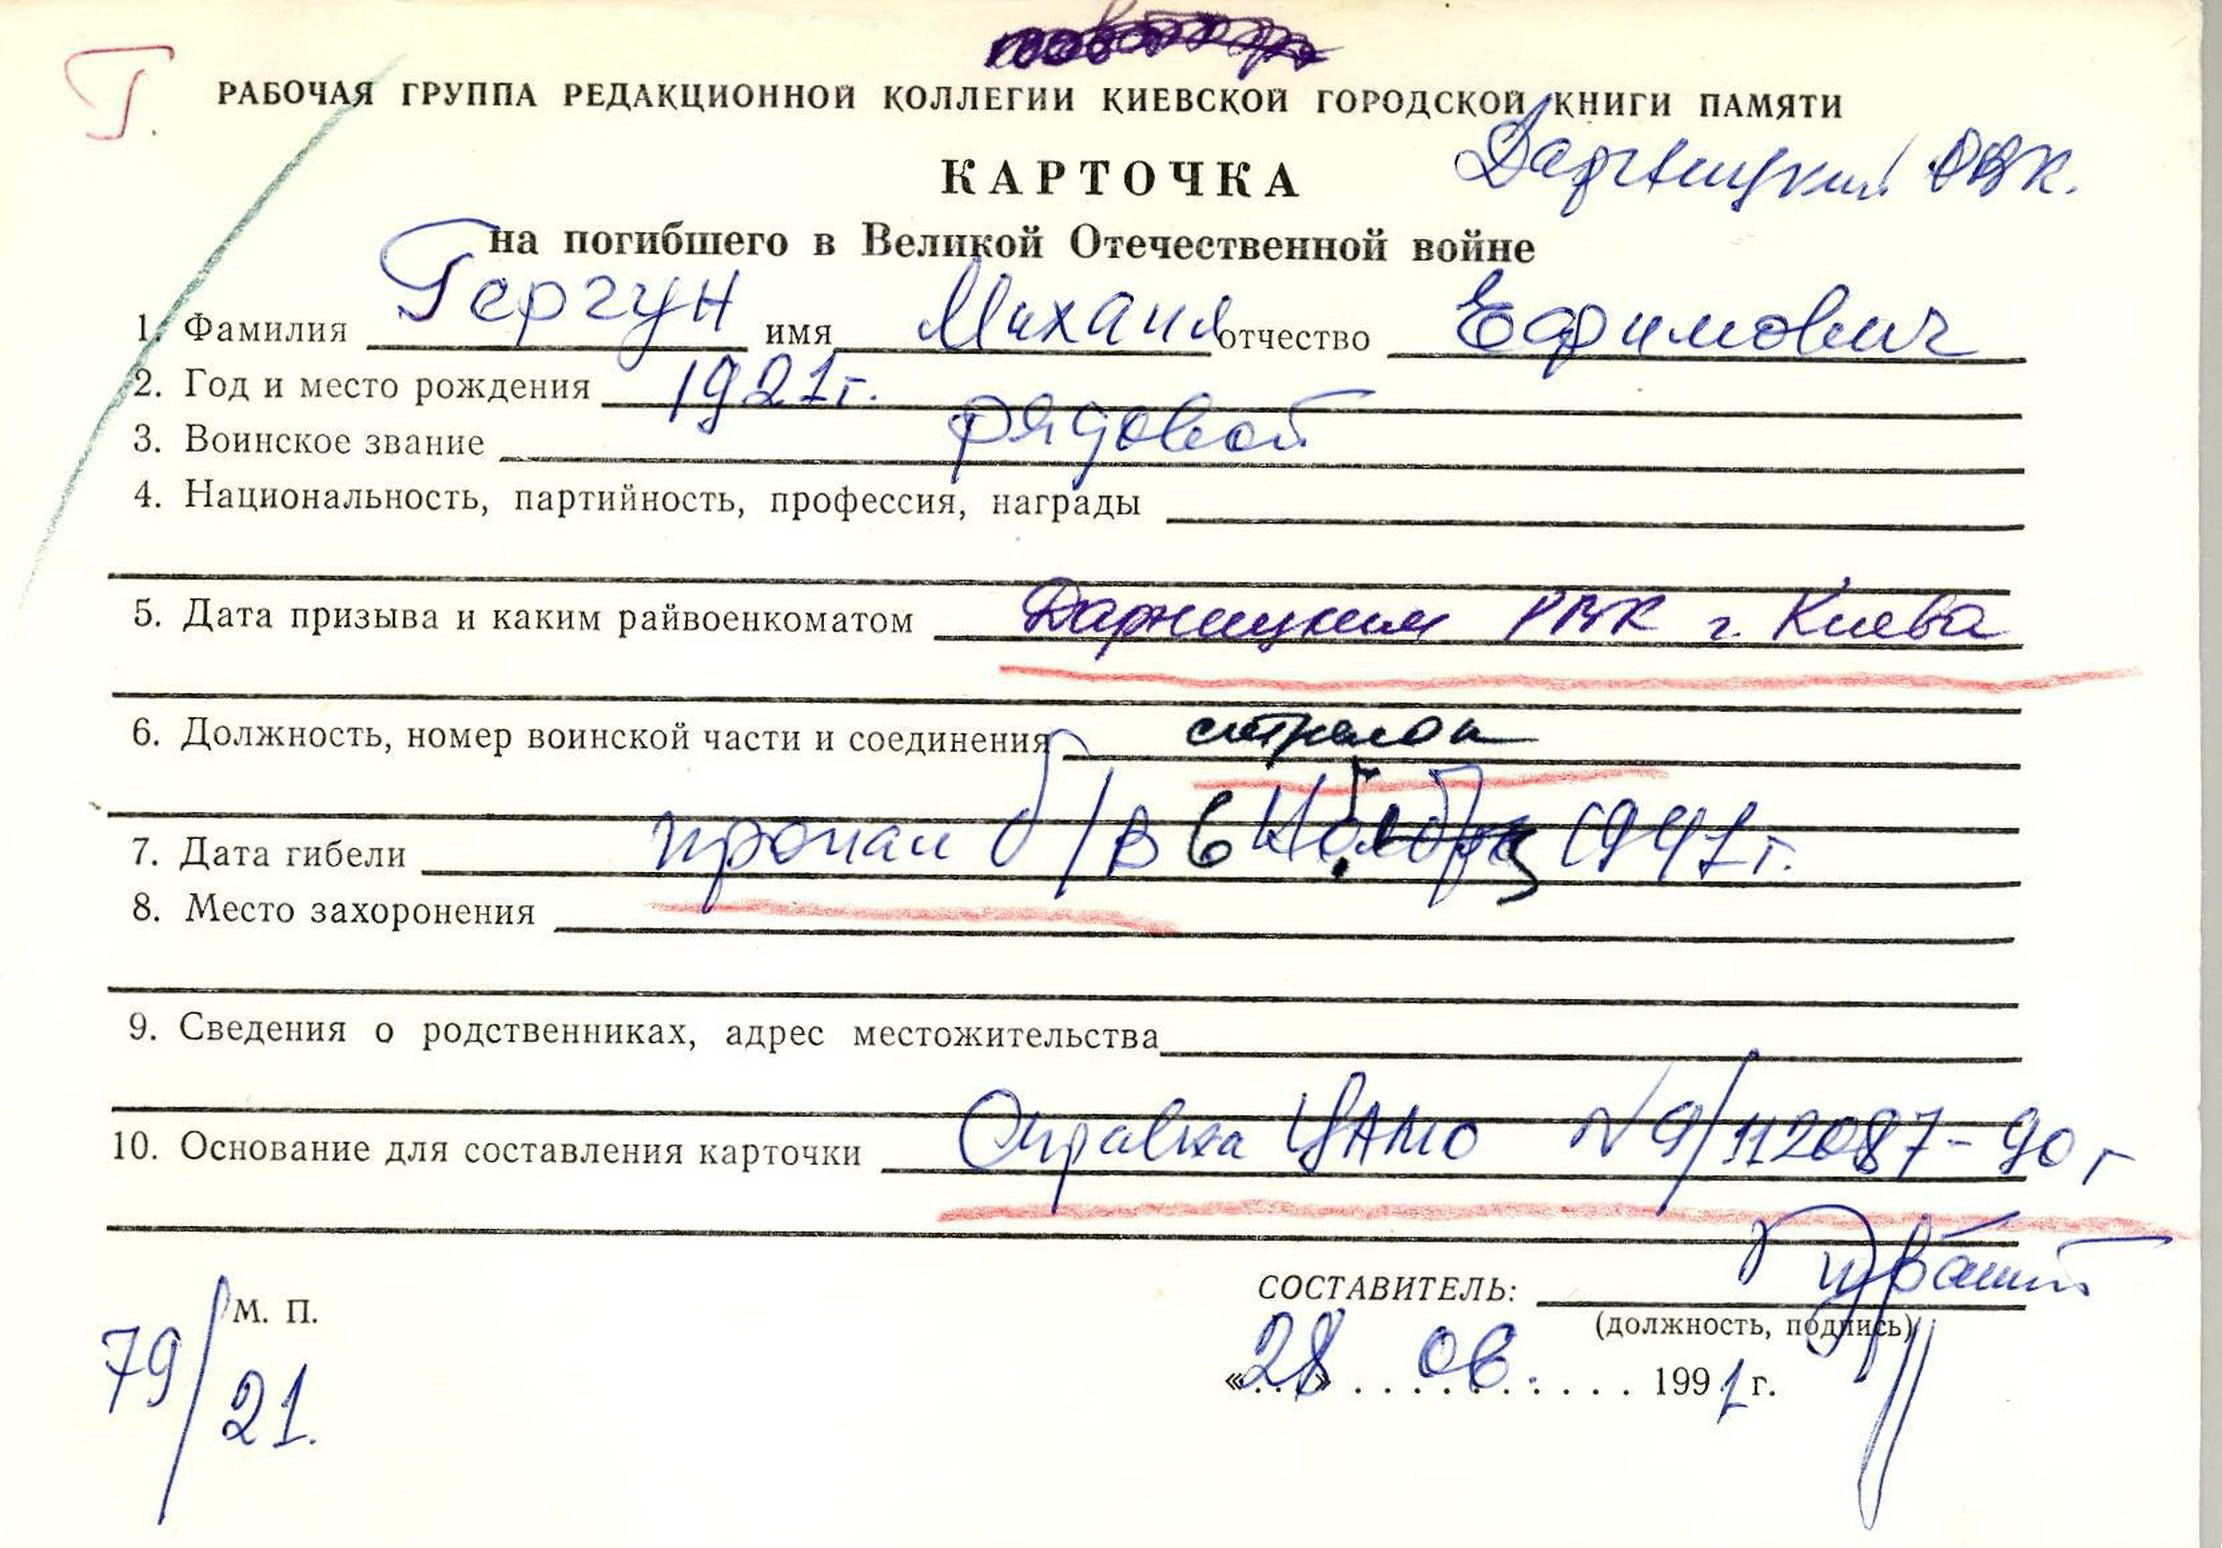 Г.
РАБОЧАЯ ГРУППА РЕДАКЦИОННОЙ КОЛЛЕГИИ КИЕВСКОЙ ГОРОДСКОЙ КНИГИ ПАМЯТИ
Дарницкий РВК.
КАРТОЧКА
на погибшего в Великой Отечественной войне
1. Фамилия Гергун имя Михаил отчество Ефимович
2. Год и место рождения 1921г.
3. Воинское звание рядовой
4. Национальность, партийность, профессия, награды
5. Дата призыва и каким райвоенкоматом Дарницким РВК г. Киева
6. Должность, номер воинской части и соединения стрелок
7. Дата гибели пропал б/в в 1941г.
8. Место захоронения
9. Сведения о родственниках, адрес местожительства
10. Основание для составления карточки Справка ЦАМО N9/112087-90г
М. П.
СОСТАВИТЕЛЬ:
(должность, подпись)
79/21.
«28» 06. 1991 г.